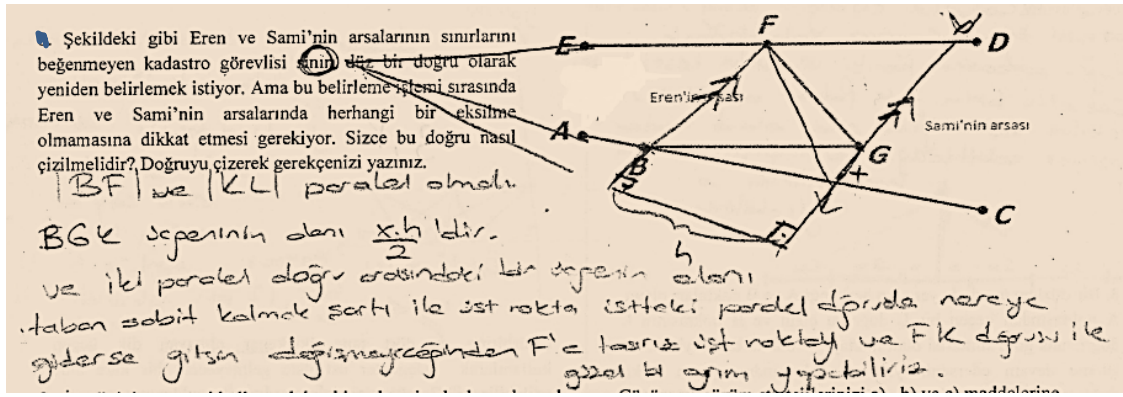 Şekildeki gibi Eren ve Sami'nin arsalarının sınırlarını
beğenmeyen kadastro görevlisi sınırı düz bir doğru olarak
yeniden belirlemek istiyor. Ama bu belirleme işlemi sırasında
Eren ve Sami'nin arsalarında herhangi bir eksilme
olmamasına dikkat etmesi gerekiyor. Sizce bu doğru nasıl
çizilmelidir? Doğruyu çizerek gerekçenizi yazınız.
E
F
D
Eren'in arsası
Sami'nin arsası
A
B
G
C
L
h
|BF| ve |KL| paralel olmalı.
BGK üçgeninin alanı x.h/2 'dir.
ve iki paralel doğru arasındaki bir üçgenin alanı
taban sabit kalmak şartı ile üst nokta üstteki paralel dğruda nereye
giderse gitsin değişmeyeceğinden F'e taşırız üst noktayı ve FK doğrusu ile
güzel bi ayrım yapabiliriz.